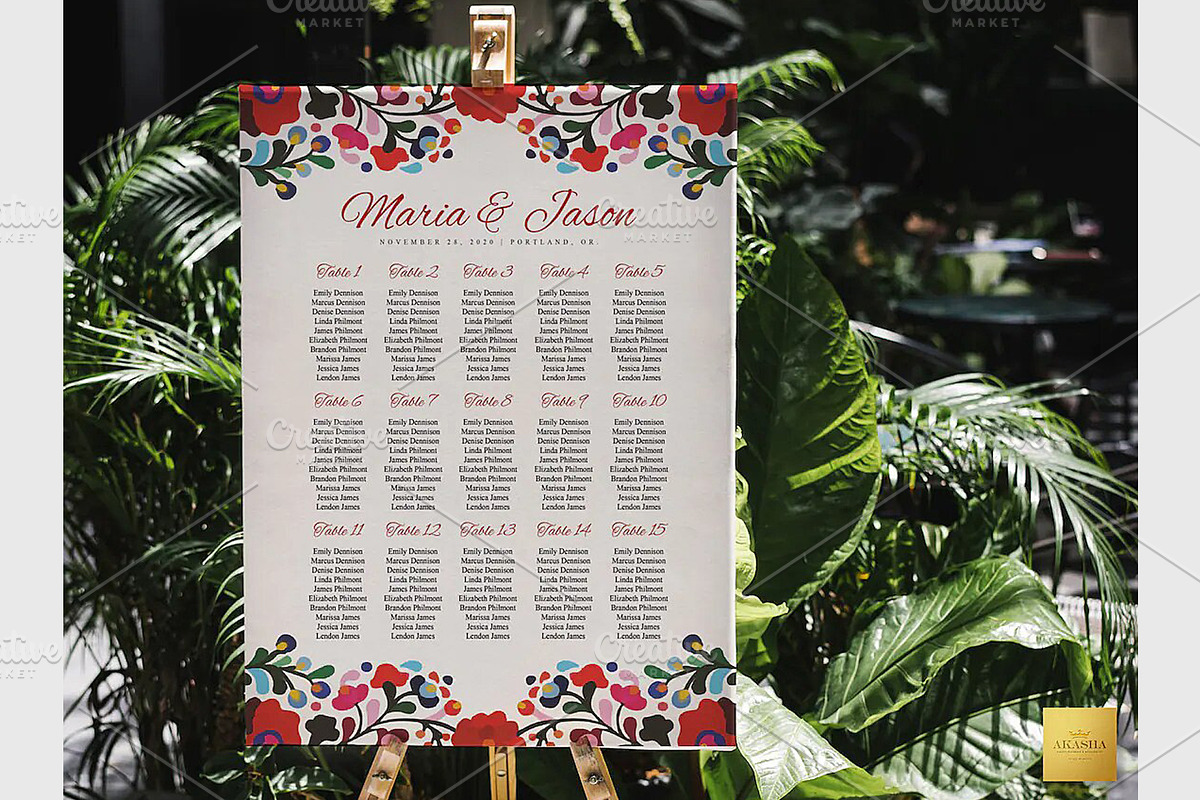 Maria & Jason
NOVEMBER 28, 2020 | PORTLAND, OR.
Table 1 Table 2 Table 3 Table 4 Table 5
Emily Dennison Emily Dennison Emily Dennison Emily Dennison Emily Dennison
Marcus Dennison Marcus Dennison Marcus Dennison Marcus Dennison Marcus Dennison
Denise Dennison Denise Dennison Denise Dennison Denise Dennison Denise Dennison
Linda Philmont Linda Philmont Linda Philmont Linda Philmont Linda Philmont
James Philmont James Philmont James Philmont James Philmont James Philmont
Elizabeth Philmont Elizabeth Philmont Elizabeth Philmont Elizabeth Philmont Elizabeth Philmont
Brandon Philmont Brandon Philmont Brandon Philmont Brandon Philmont Brandon Philmont
Marissa James Marissa James Marissa James Marissa James Marissa James
Jessica James Jessica James Jessica James Jessica James Jessica James
Lendon James Lendon James Lendon James Lendon James Lendon James
Table 6 Table 7 Table 8 Table 9 Table 10
Emily Dennison Emily Dennison Emily Dennison Emily Dennison Emily Dennison
Marcus Dennison Marcus Dennison Marcus Dennison Marcus Dennison Marcus Dennison
Denise Dennison Denise Dennison Denise Dennison Denise Dennison Denise Dennison
Linda Philmont Linda Philmont Linda Philmont Linda Philmont Linda Philmont
James Philmont James Philmont James Philmont James Philmont James Philmont
Elizabeth Philmont Elizabeth Philmont Elizabeth Philmont Elizabeth Philmont Elizabeth Philmont
Brandon Philmont Brandon Philmont Brandon Philmont Brandon Philmont Brandon Philmont
Marissa James Marissa James Marissa James Marissa James Marissa James
Jessica James Jessica James Jessica James Jessica James Jessica James
Lendon James Lendon James Lendon James Lendon James Lendon James
Table 11 Table 12 Table 13 Table 14 Table 15
Emily Dennison Emily Dennison Emily Dennison Emily Dennison Emily Dennison
Marcus Dennison Marcus Dennison Marcus Dennison Marcus Dennison Marcus Dennison
Denise Dennison Denise Dennison Denise Dennison Denise Dennison Denise Dennison
Linda Philmont Linda Philmont Linda Philmont Linda Philmont Linda Philmont
James Philmont James Philmont James Philmont James Philmont James Philmont
Elizabeth Philmont Elizabeth Philmont Elizabeth Philmont Elizabeth Philmont Elizabeth Philmont
Brandon Philmont Brandon Philmont Brandon Philmont Brandon Philmont Brandon Philmont
Marissa James Marissa James Marissa James Marissa James Marissa James
Jessica James Jessica James Jessica James Jessica James Jessica James
Lendon James Lendon James Lendon James Lendon James Lendon James
AKASHA
Creative
MARKET
Creative
MARKET
Creative
MARKET
Creative
MARKET
Creative
MARKET